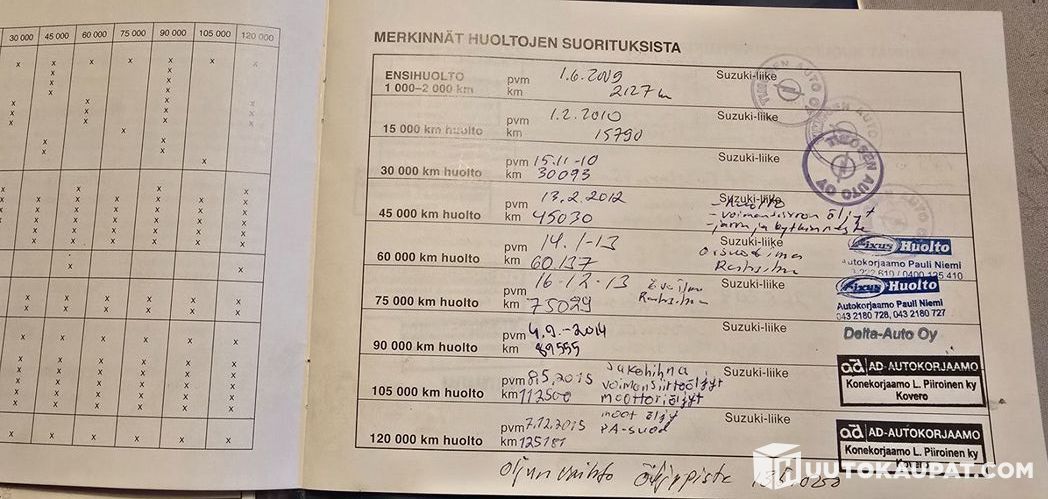 30 000 45 000 60 000 75 000 90 000 105 000 120 000
MERKINNÄT HUOLTOJEN SUORITUKSISTA
ENSIHUOLTO pvm 1.6.2009 Suzuki-liike
1 000–2 000 km km 2127 km
pvm 1.2.2010 Suzuki-liike
15 000 km huolto km 15790
pvm 15.11-10 Suzuki-liike
30 000 km huolto km 30093
TUOSEN AUTO OY
pvm 13.2.2012 Suzuki-liike
-Huolto
45 000 km huolto km 45030
pvm 14.1-13 Suzuki-liike
60 000 km huolto km 60137
Fixus Huolto
Autokorjaamo Pauli Niemi
pvm 16-12-13 Suzuki-liike
75 000 km huolto km 75029
Fixus Huolto
Autokorjaamo Pauli Niemi
043 2180 728, 043 2180 727
pvm 4.9.-2014 Suzuki-liike
90 000 km huolto km 89555
Delta-Auto Oy
jakohihna
pvm 8.5.2015 voimansiirtoöljyt Suzuki-liike
105 000 km huolto km 112500 moottoriöljyt
ad AD-AUTOKORJAAMO
Konekorjaamo L. Piiroinen ky
Kovero
moot öljyt
pvm 7.12.2015 PA-suod Suzuki-liike
120 000 km huolto km 125181
ad AD-AUTOKORJAAMO
Konekorjaamo L. Piiroinen ky
Kovero
öljyn vaihto
HUUTOKAUPAT.COM